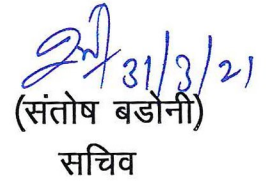 31/3/21
(संतोष बडोनी)
सचिव